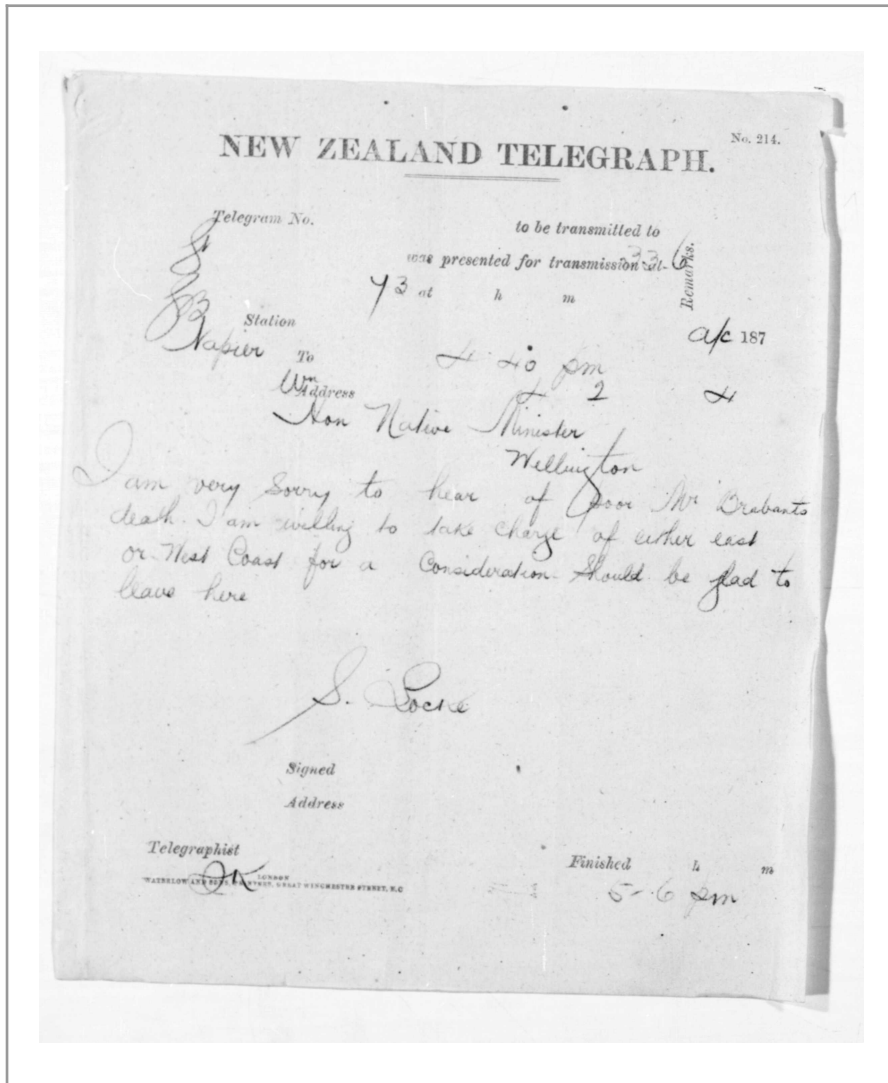 No. 214.
NEW ZEALAND TELEGRAPH.
Telegram No.
to be transmitted to
was presented for transmission at
336
Remarks.
73 at h m
Station
a/c 187
Napier
To
4 40 pm
Wn
Address
4 2 4
Hon Native Minister
Wellington
I am very Sorry to hear of poor Mr Brabants
death. I am willing to take charge of either east
or West Coast for a Consideration. Should be glad to
leave here
S. Locke
Signed
Address
Telegraphist
Finished h m
LONDON
WATERLOW AND SONS, PRINTERS, GREAT WINCHESTER STREET, E.C
5-6 pm